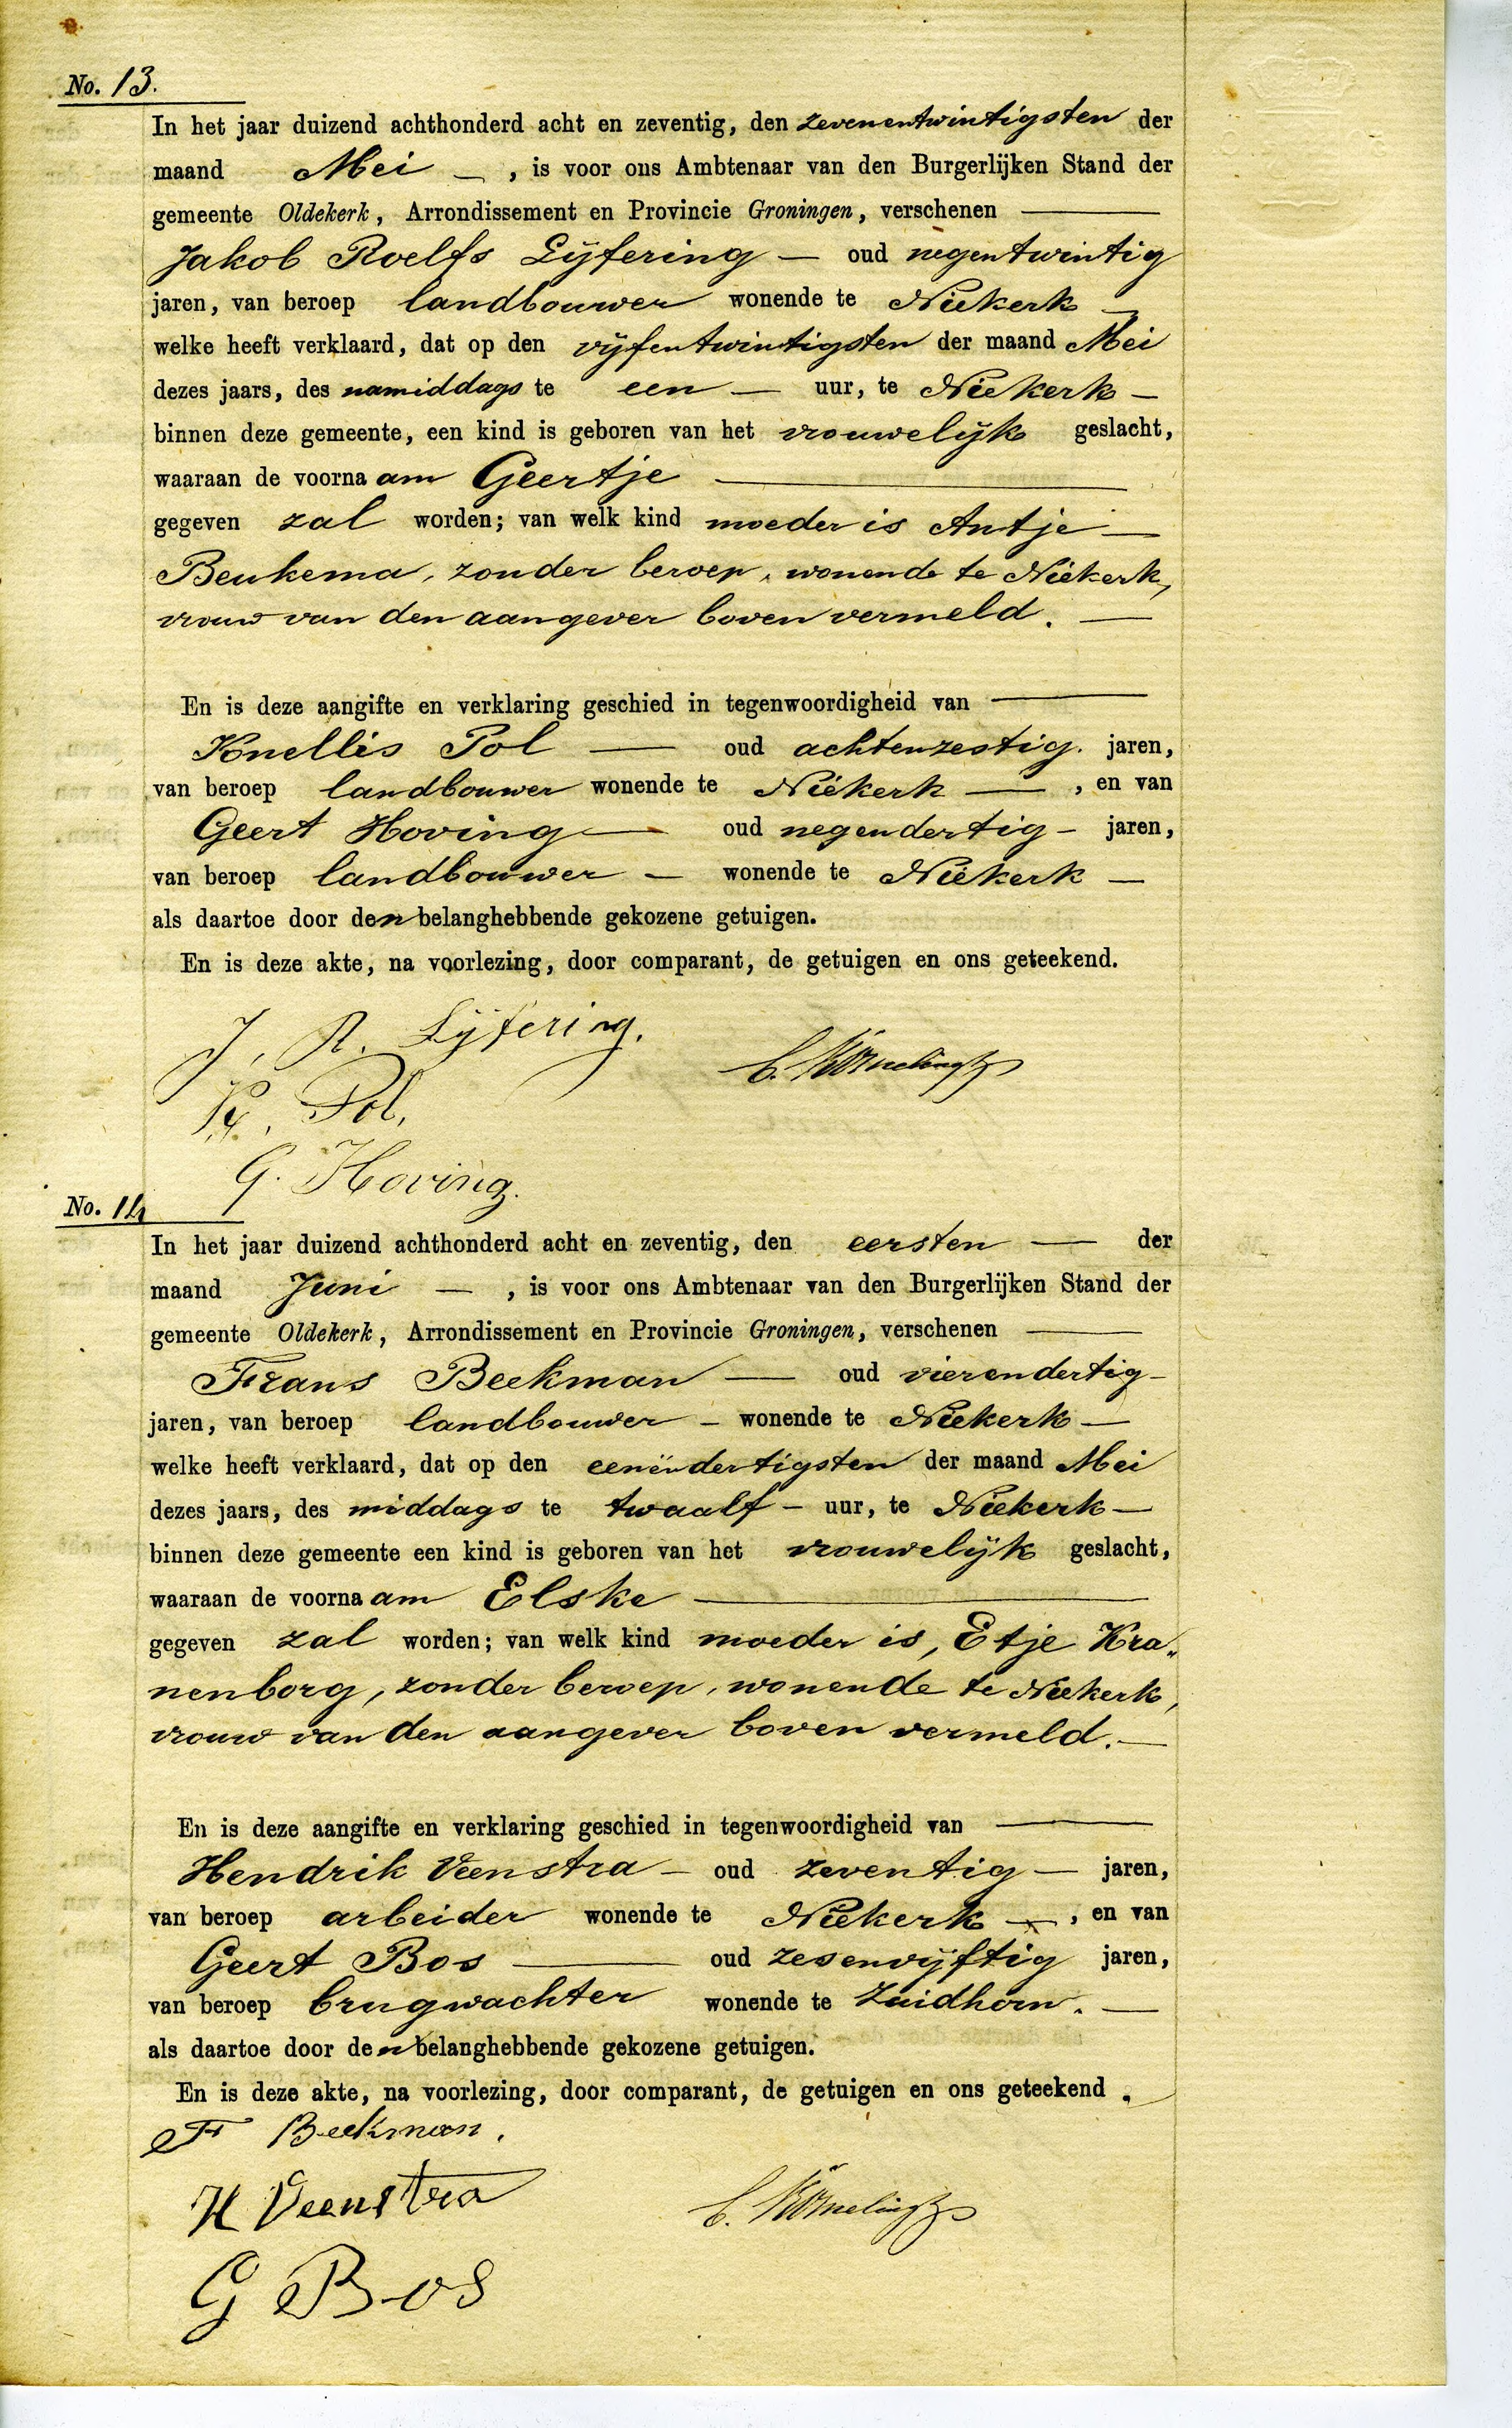 No. 13.
In het jaar duizend achthonderd acht en zeventig, den zevenentwintigsten der
maand Mei —, is voor ons Ambtenaar van den Burgerlijken Stand der
gemeente Oldekerk, Arrondissement en Provincie Groningen, verschenen —
Jakob Roelfs Lijfering — oud negentwintig
jaren, van beroep landbouwer wonende te Niekerk —
welke heeft verklaard, dat op den vijfentwintigsten der maand Mei
dezes jaars, des namiddags te een — uur, te Niekerk —
binnen deze gemeente, een kind is geboren van het vrouwelijk geslacht,
waaraan de voornaam Geertje —
gegeven zal worden; van welk kind moeder is Antje —
Beukema, zonder beroep, wonende te Niekerk,
vrouw van den aangever boven vermeld. —
En is deze aangifte en verklaring geschied in tegenwoordigheid van —
Knellis Pol — oud achtenzestig jaren,
van beroep landbouwer wonende te Niekerk —, en van
Geert Hoving — oud negendertig — jaren,
van beroep landbouwer — wonende te Niekerk —
als daartoe door den belanghebbende gekozene getuigen.
En is deze akte, na voorlezing, door comparant, de getuigen en ons geteekend.
J. R. Lijfering.
K. Pol.
G. Hoving.
No. 14
In het jaar duizend achthonderd acht en zeventig, den eersten — der
maand Juni —, is voor ons Ambtenaar van den Burgerlijken Stand der
gemeente Oldekerk, Arrondissement en Provincie Groningen, verschenen —
Frans Beekman — oud vierendertig —
jaren, van beroep landbouwer — wonende te Niekerk —
welke heeft verklaard, dat op den eenëndertigsten der maand Mei
dezes jaars, des middags te twaalf — uur, te Niekerk —
binnen deze gemeente een kind is geboren van het vrouwelijk geslacht,
waaraan de voornaam Elske —
gegeven zal worden; van welk kind moeder is, Etje Kra„
nenborg, zonder beroep, wonende te Niekerk,
vrouw van den aangever boven vermeld. —
En is deze aangifte en verklaring geschied in tegenwoordigheid van —
Hendrik Veenstra — oud zeventig — jaren,
van beroep arbeider wonende te Niekerk —, en van
Geert Bos — oud zesenvijftig jaren,
van beroep brugwachter wonende te Zuidhorn. —
als daartoe door den belanghebbende gekozene getuigen.
En is deze akte, na voorlezing, door comparant, de getuigen en ons geteekend.
F Beekman.
H Veenstra
G Bos